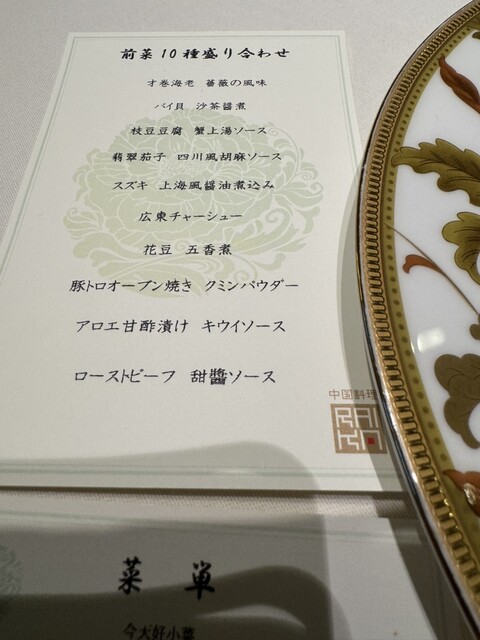 前菜10種盛り合わせ
才巻海老 薔薇の風味
バイ貝 沙茶醤煮
枝豆豆腐 蟹上湯ソース
翡翠茄子 四川風胡麻ソース
スズキ 上海風醤油煮込み
広東チャーシュー
花豆 五香煮
豚トロオーブン焼き クミンパウダー
アロエ甘酢漬け キウイソース
ローストビーフ 甜醬ソース
中国料理
菜単